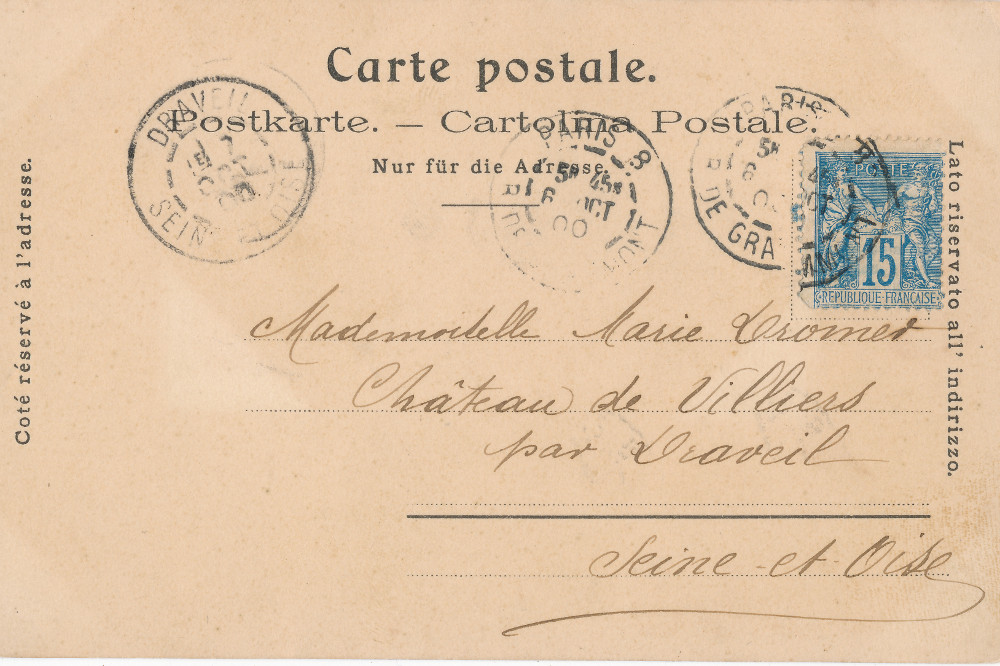 Carte postale.
Postkarte. — Cartolina Postale.
Nur für die Adresse.
Coté réservé à l'adresse.
Lato riservato all' indirizzo.
DRAVEIL
SEINE
OISE
PARIS 8
5E 45M
6 OCT
00
PARIS
DE GRA
POSTE
15
REPUBLIQUE FRANÇAISE
Mademoiselle Marie Dromer
Château de Villiers
par Draveil
Seine-et-Oise